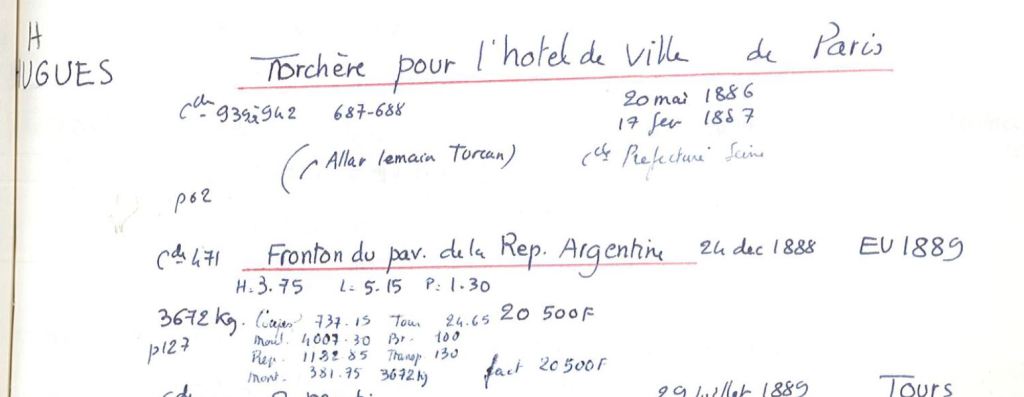 H
UGUES
Torchère pour l'hotel de ville de Paris
Cde 939 à 942 687-688 20 mai 1886
17 fev 1887
(Allar lemain Turcan) Cde Prefecture Seine
p62
Cde 471 Fronton du pav. de la Rep. Argentine 24 dec 1888 EU 1889
H. 3.75 L. 5.15 P. 1.30
3672 kg. 737.15 Tour 24.65 20 500F
p127 Moul. 4007.30 Br. 100
Rep. 1182.85 Transp 130
Mont. 381.75 3672 kg fact 20500F
Cde 29 juillet 1889 Tours